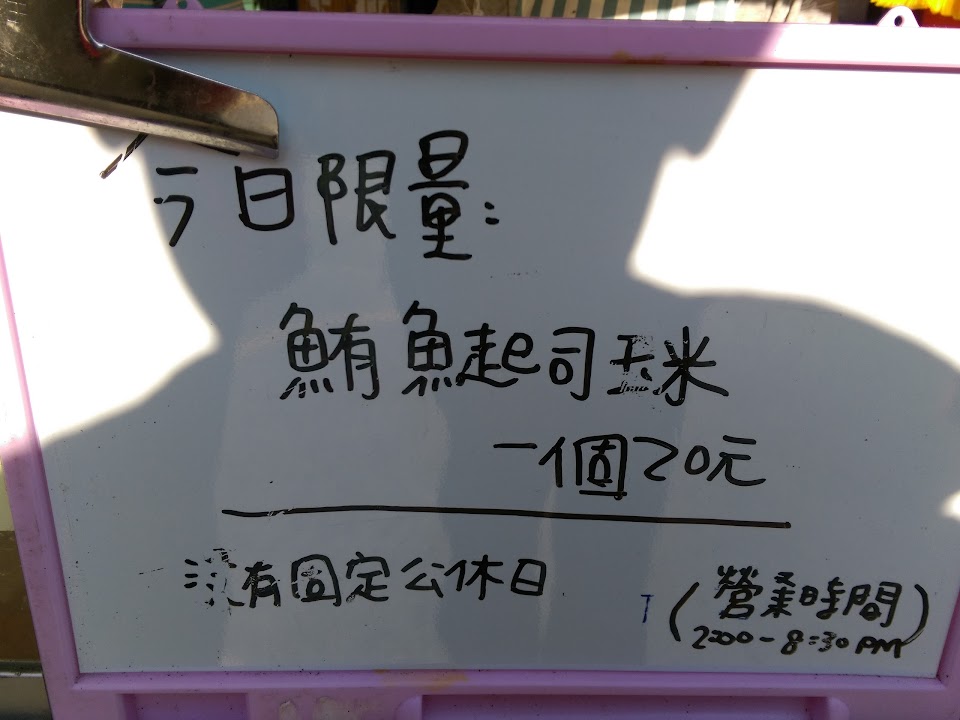 今日限量:
鮪魚起司玉米
一個20元
沒有固定公休日
(營業時間
2:00-8:30PM)